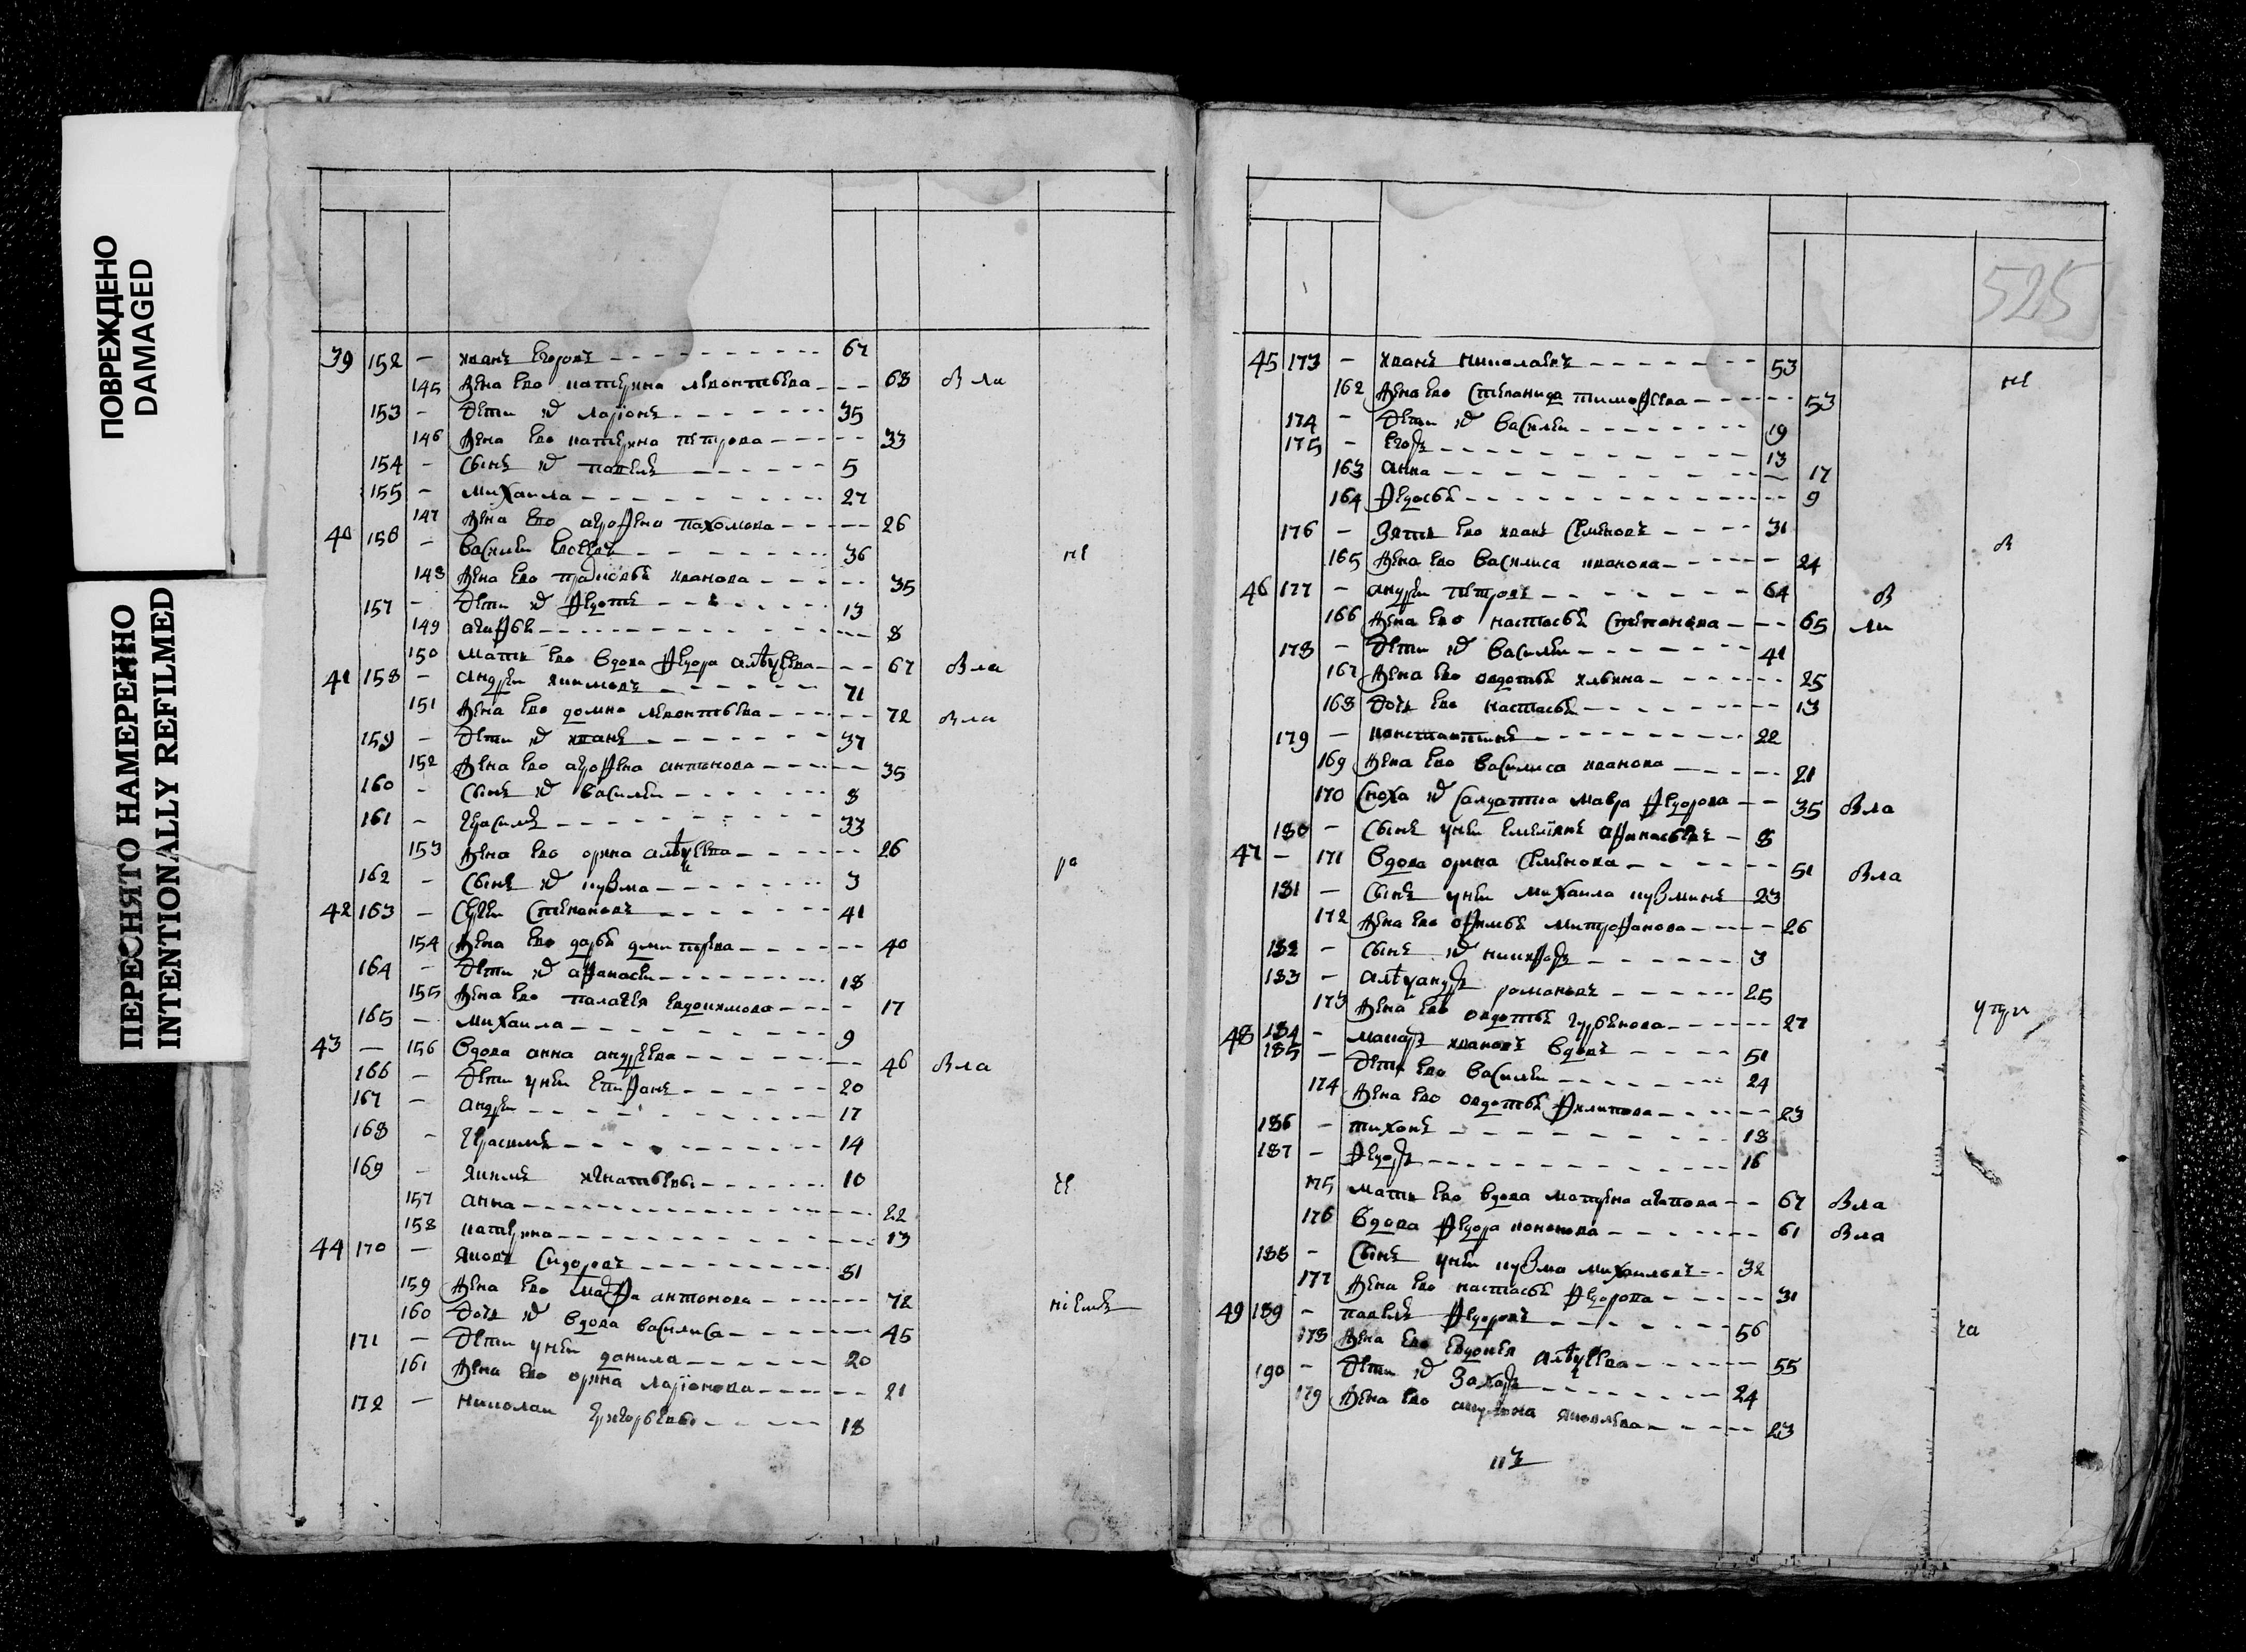 ПОВРЕЖДЕНО
DAMAGED
ПЕРЕСНЯТО НАМЕРЕННО
INTENTIONALLY REFILMED
39 152 - иванъ егоровъ 67
145 жена ево катерина леонтьева 68 вла
153 - дети их ларионъ 35
146 жена ево катерина петрова 33
154 - сынъ их павелъ 5
155 - михаила 27
147 жена ево агрофена пахомова 26
40 156 - василеи евсеевъ 36 не
148 жена ево прасковья иванова 35
157 - дети их федотъ 13
149 агафья 8
150 мать ево вдова федора алексеева 67 вла
41 158 - андреи якимовъ 71
151 жена ево домна леонтьева 72 вла
159 - дети их иванъ 37
152 жена ево агрофена антонова 35
160 - сынъ их василеи 8
161 - герасимъ 33
153 жена ево орина алексеева 26 ро
162 - сынъ их кузма 3
42 163 - сергеи степановъ 41
154 жена ево дарья дмитрева 40
164 - дети их афанасеи 18
155 жена ево палагея евдокимова 17
165 - михаила 9
43 - 156 вдова анна андреева 46 вла
166 - дети у неи епифанъ 20
167 - андреи 17
168 - герасимъ 14
169 - якимъ игнатьевы 10 че
157 анна 22
158 катерина 13
44 170 - яковъ сидоровъ 81
159 жена ево марфа антонова 72
160 дочь их вдова василиса 45
171 - дети у неи данила 20
161 жена ево орина ларионова 21
172 - николаи григорьевы 18
525
45 173 - иванъ николаевъ 53 не
162 жена ево степанида тимофеева 53
174 - дети их василеи 19
175 - егоръ 13
163 анна 17
164 федосья 9
176 - зять ево иванъ семеновъ 31 в
165 жена ево василиса иванова 24
46 177 - андреи петровъ 64 в
166 жена ево настасья степанова 65 ли
178 - дети их василеи 41
167 жена ево овдотья ильина 25
168 дочь ево настасья 13
179 - констянтинъ 22
169 жена ево василиса иванова 21
170 сноха их салдатка мавра федорова 35 вла
180 - сынъ у неи емелиянъ афанасьевъ 8
47 - 171 вдова орина семенова 51 вла
181 - сынъ у неи михаила кузминъ 23
172 жена ево офимья митрофанова 26
182 - сынъ их никифоръ 3
183 - александръ романовъ 25
173 жена ево овдотья гурьенова 27
48 184 - макаръ ивановъ вдовъ 51
185 - дети ево василеи 24
174 жена ево овдотья филипова 23
186 - тихонъ 18
187 - федоръ 16
175 мать ево вдова матрена агапова 67 вла
176 вдова федора кононова 61 вла
188 - сынъ у неи кузма михаиловъ 32
177 жена ево настасья федорова 31
49 189 - павелъ федоровъ 56 га
178 жена ево евдокея алексеева 55
190 - дети их захаръ 24
179 жена ево акулина яковлева 23